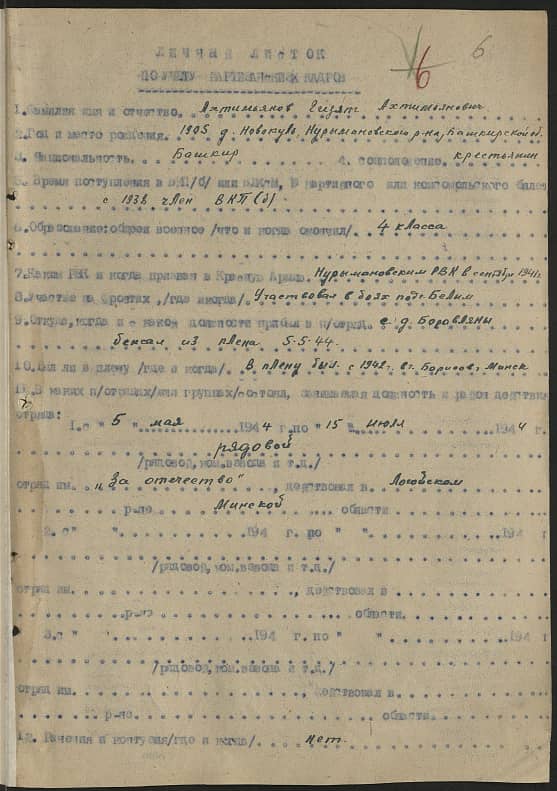 6 6
ЛИЧНАЯ ЛИСТОК
ПО УЧЕТУ ПАРТИЗАНСКИХ КАДРОВ
1. Фамилия имя и отчество. Ахтимьянов Гизят Ахтимьянович
2. Год и место рождения. 1905 д. Новокуло, Нурымановского р-на, Башкирской об.
3. Национальность. Башкир 4. соцположение. крестьянин
5. Время поступления в ВКП/б/ или ВЛКСМ, № партийного или комсомольского билета
с 1938 член ВКП(б)
6. Образование: общее военное /что и когда окончил/. 4 класса
7. Каким РВК и когда призван в Красную Армию. Нурымановским РВК в сентябр 1941г.
8. Участие на фронтах, /где и когда/. Участвовал в боях под г.
9. Откуда, когда и с какой должности прибыл в п/отряд. с д. Боровляны
бежал из плена 5-5-44.
10. Был ли в плену /где и когда/. В плену был с 1942г. в г. Борисов, Минск
11. В каких п/отрядах/или группах/состоял, занимаемая должность и район действия
отряда:
1. с " 5 " мая 1944 г. по " 15 " июля 1944 г.
рядовой
/рядовой, ком. взвода и т.д./
отряд им. "За отечество", действовал в Логойском
р-не Минской области
2. с " " 194 г. по " " 194 г
/рядовой, ком. взвода и т.д./
отряд им. , действовал в
р-не области.
3. с " 194 г. по " " 194 г
/рядовой, ком. взвода и т.д./
отряд им. , действовал в
р-не области.
12. Ранения и контузия/где и когда/. нет.